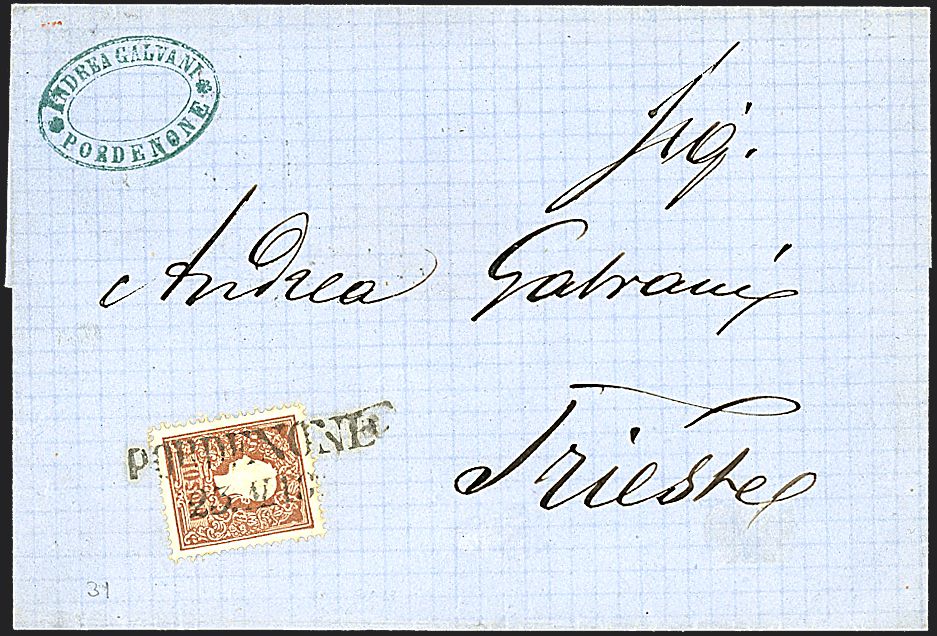 ANDREA GALVANI
PORDENONE
Sig.
Andrea Galvani
Trieste
PORDENONE
31